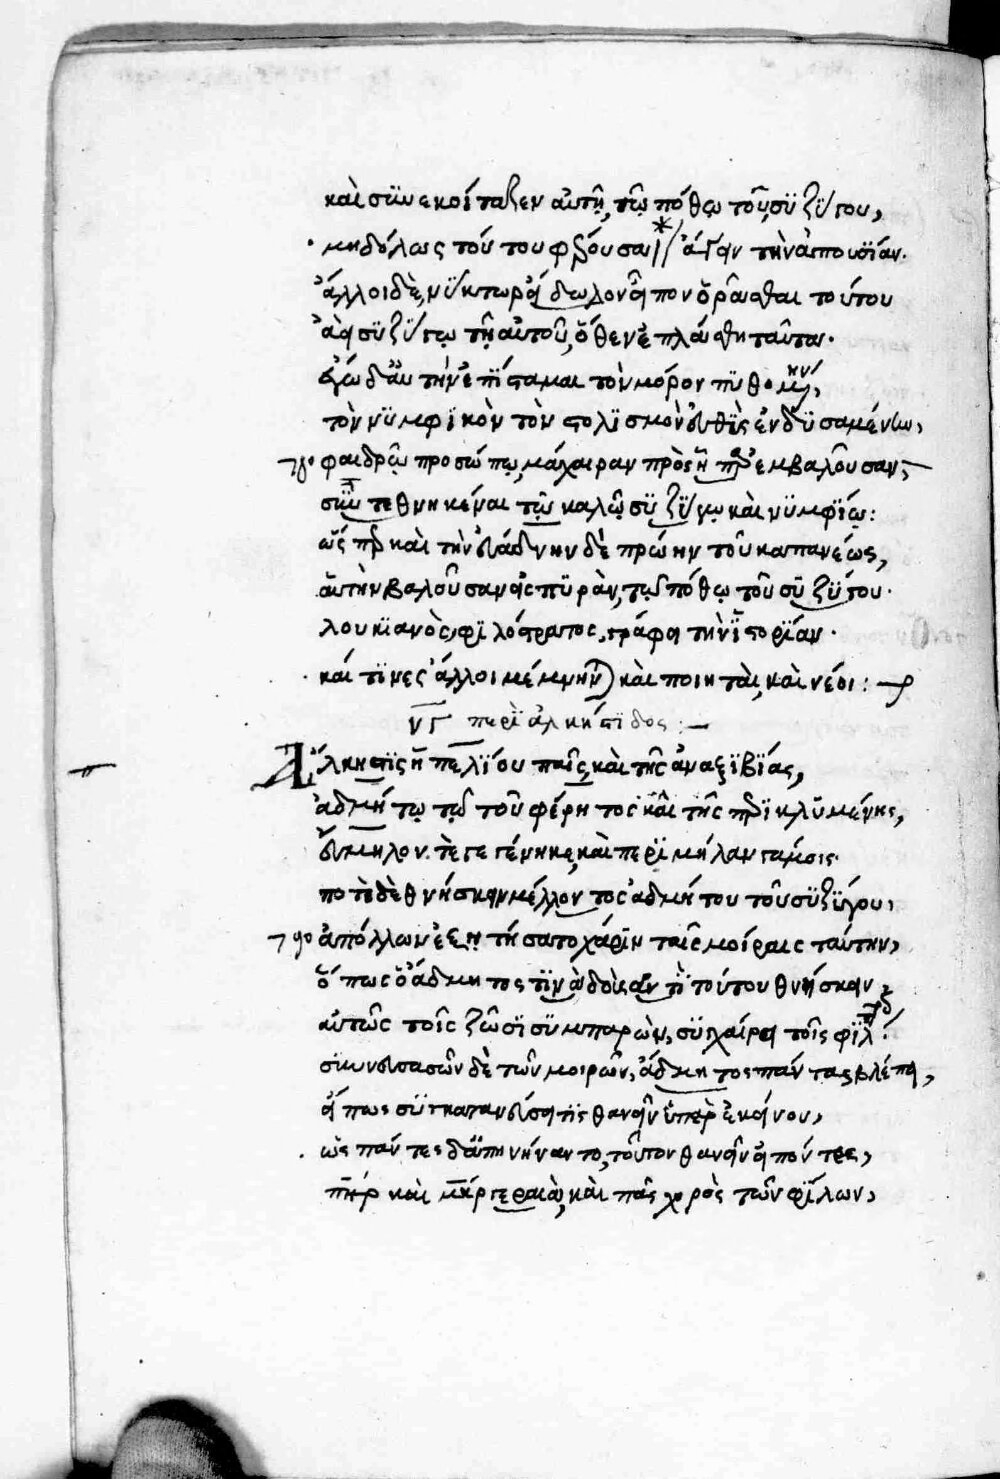 καὶ συνεκοίταζεν αὐτῇ, τῷ πόθῳ τοῦ συζύγου,
μηδόλως τοῦ του φέρουσα // ἄγαν τὴν ἀπουσίαν.
ἄλλοι δὲ, νύκτωρ εἴδωλον εἶπον ὁρᾶσθαι τούτου
τῇ αὐτοῦ, ὅθεν ἐπλάσθη ταῦτα.
ἐγὼ δ' αὖ τὴν ἐπίσταμαι τὸν μόρον πυθομένην,
τὸν νυμφικὸν τὸν στολισμὸν εὐθὺς ἐνδυσαμένην,
φαιδρῷ προσώπῳ, μάχαιραν πρὸς ἧπαρ ἐμβαλοῦσαν,
συντεθνηκέναι τῷ καλῷ συζύγῳ καὶ νυμφίῳ:
ὥσπερ καὶ τὴν εὐάδνην δὲ πρώην τοῦ καπανέως,
αὑτὴν βαλοῦσαν εἰς πυρὰν, τῷ πόθῳ τοῦ συζύγου.
λουκιανὸς, φιλόστρατος, γράφει τὴν ἱστορίαν.
καί τινες ἄλλοι μέμνηνται καὶ ποιηταὶ, καὶ νέοι:
νγ περὶ ἀλκήστιδος:
Ἄλκηστις ἡ πελίου παῖς, καὶ τῆς ἀναξιβίας,
ἀδμήτῳ τῷ τοῦ φέρητος καὶ τῆς περικλυμένης,
εὔμηλον τὲ γεγέννηκε, καὶ περιμήλαν γάμοις.
ποτὲ δὲ θνήσκειν μέλλοντος ἀδμήτου τοῦ συζύγου,
ἀπόλλων ἐξῃτήσατο χάριν ταῖς μοίραις ταύτην,
ὅπως ὁ ἄδμητος τινὰ δοὺς ἀντὶ τούτου θνήσκειν
αὐτὸς τοῖς ζῶσι συμπαρὼν, συγχαίρει τοῖς φίλ
συνευσασῶν δὲ τῶν μοιρῶν, ἄδμητος πάντας βλέπει,
εἴπως συγκατανεύσει τις θανεῖν ὑπὲρ ἐκείνου,
ὡς πάντες δ' ἀπηνήναντο, τοῦτον θανεῖν εἰπόντες,
πηρ καὶ μηρ γεραιὰ, καὶ πᾶς χορὸς τῶν φίλων,